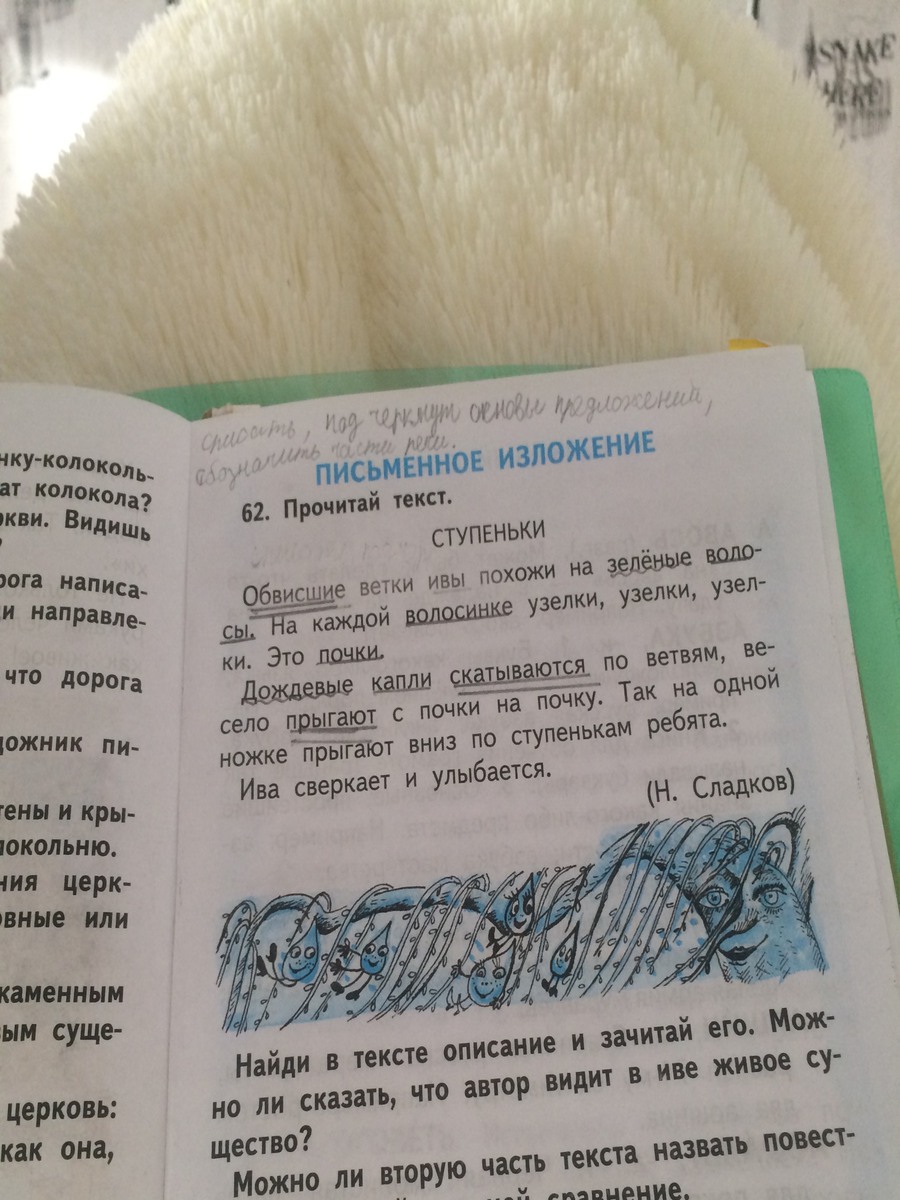 SNAKE
HERE
списать, под черкнут основы предложений,
обозначить части речи.
ПИСЬМЕННОЕ ИЗЛОЖЕНИЕ
62. Прочитай текст.
СТУПЕНЬКИ
Обвисшие ветки ивы похожи на зелёные воло-
сы. На каждой волосинке узелки, узелки, узел-
ки. Это почки.
Дождевые капли скатываются по ветвям, ве-
село прыгают с почки на почку. Так на одной
ножке прыгают вниз по ступенькам ребята.
Ива сверкает и улыбается.
(Н. Сладков)
Найди в тексте описание и зачитай его. Мож-
но ли сказать, что автор видит в иве живое су-
щество?
Можно ли вторую часть текста назвать повест-
сравнение.
нку-колоколь-
ат колокола?
ркви. Видишь
рога написа-
и направле-
что дорога
дожник пи-
тены и кры-
локольню.
ния церк-
овные или
каменным
вым суще-
церковь:
как она,